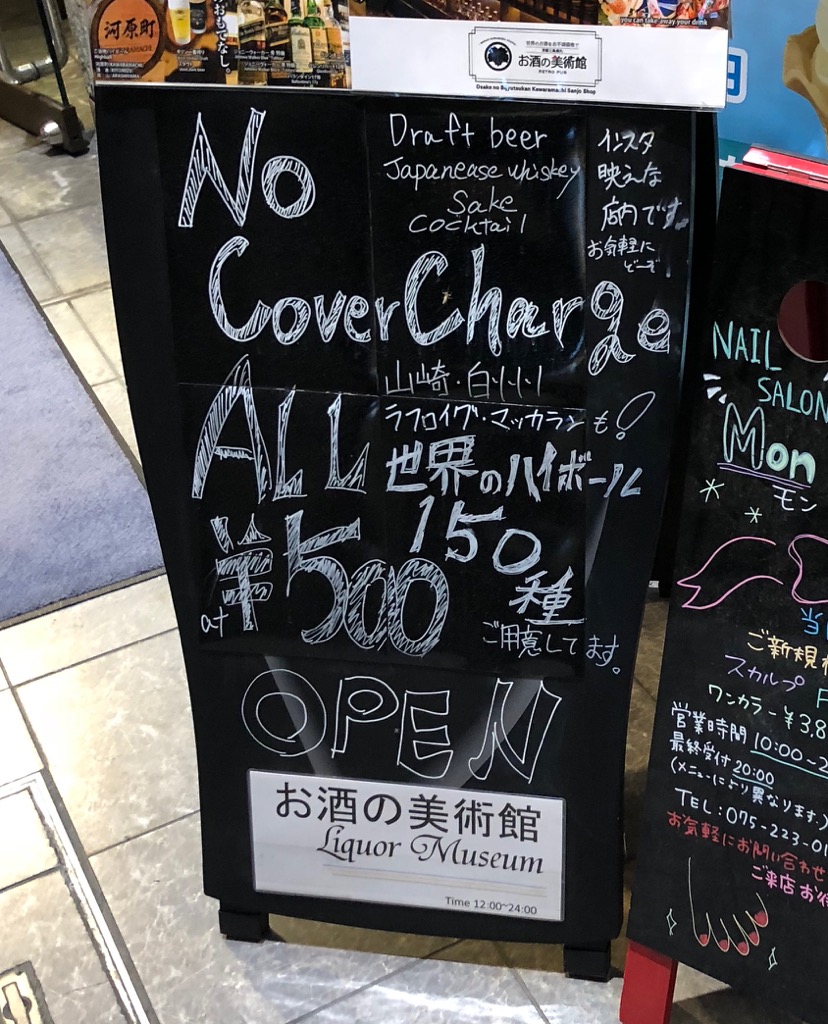 河原町
おもてなし。
you can take away your drink
お酒の美術館
Osake no Bijyutsukan Kawaramachi Sanjo Shop
No
Cover Charge
ALL
at ¥500
Draft beer
Japanease whiskey
Sake
Cocktail
インスタ
映えな
店内です。
お気軽に
どーぞ
山崎・白州
ラフロイグ・マッカランも!
世界のハイボール
150
種
ご用意してます。
OPEN
お酒の美術館
Liquor Museum
Time 12:00~24:00
NAIL
SALON
Mon
モン
ご新規
スカルプ
ワンカラー ¥3,8
営業時間 10:00~2
最終受付 20:00
(メニューにより異なります。)
TEL:075-223-01
お気軽にお問い合わせ
ご来店お待